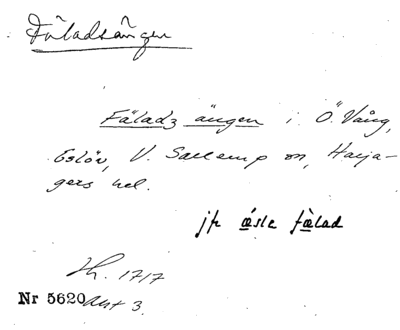 Fäladsängen
Fälads ängen i Ö. Vång,
Eslöv, V. Sallerup sn, Harja-
gers hd.
jfr æsle fælad
Lh. 1717
Nr 5620 Akt 3.